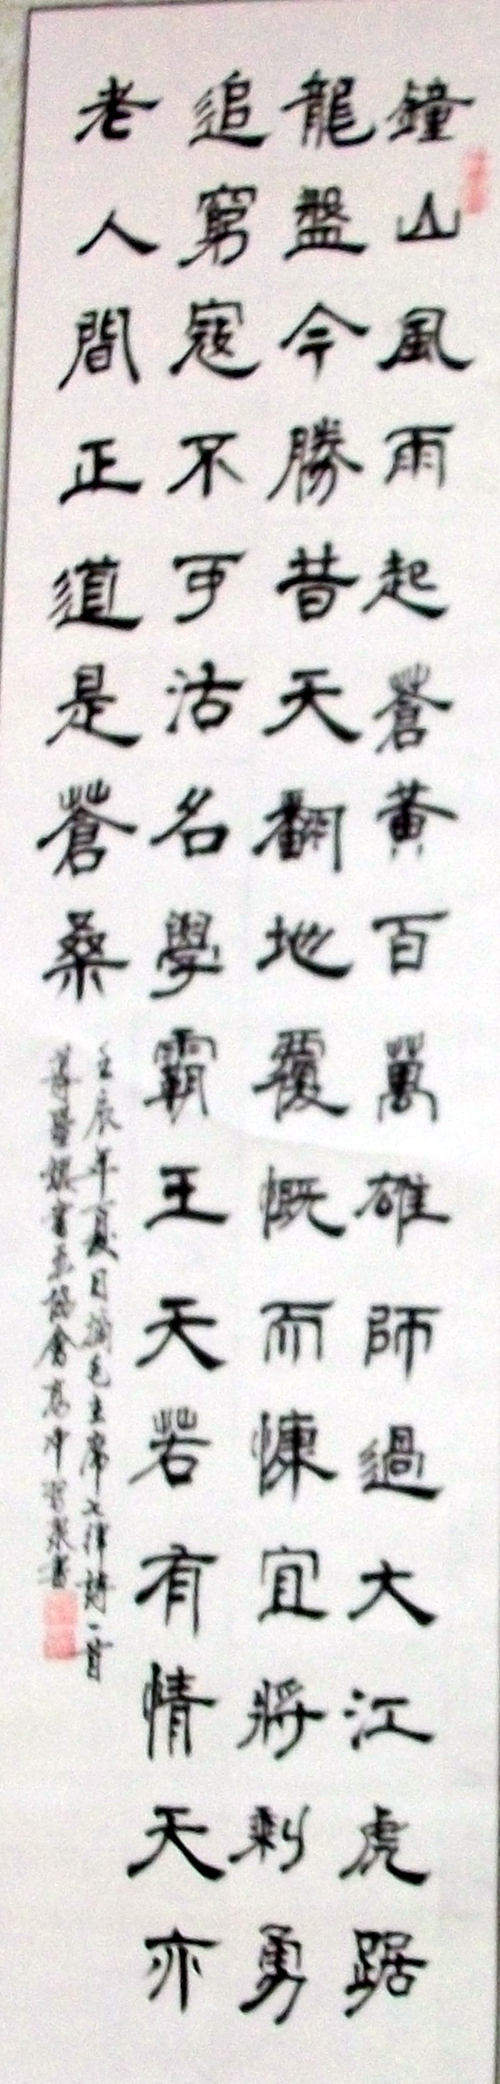 鐘山風雨起蒼黃百萬雄師過大江虎踞
龍盤今勝昔天翻地覆慨而慷宜將剩勇
追窮寇不可沽名學霸王天若有情天亦
老人間正道是蒼桑
壬辰年夏日摘毛主席七律詩一首
書